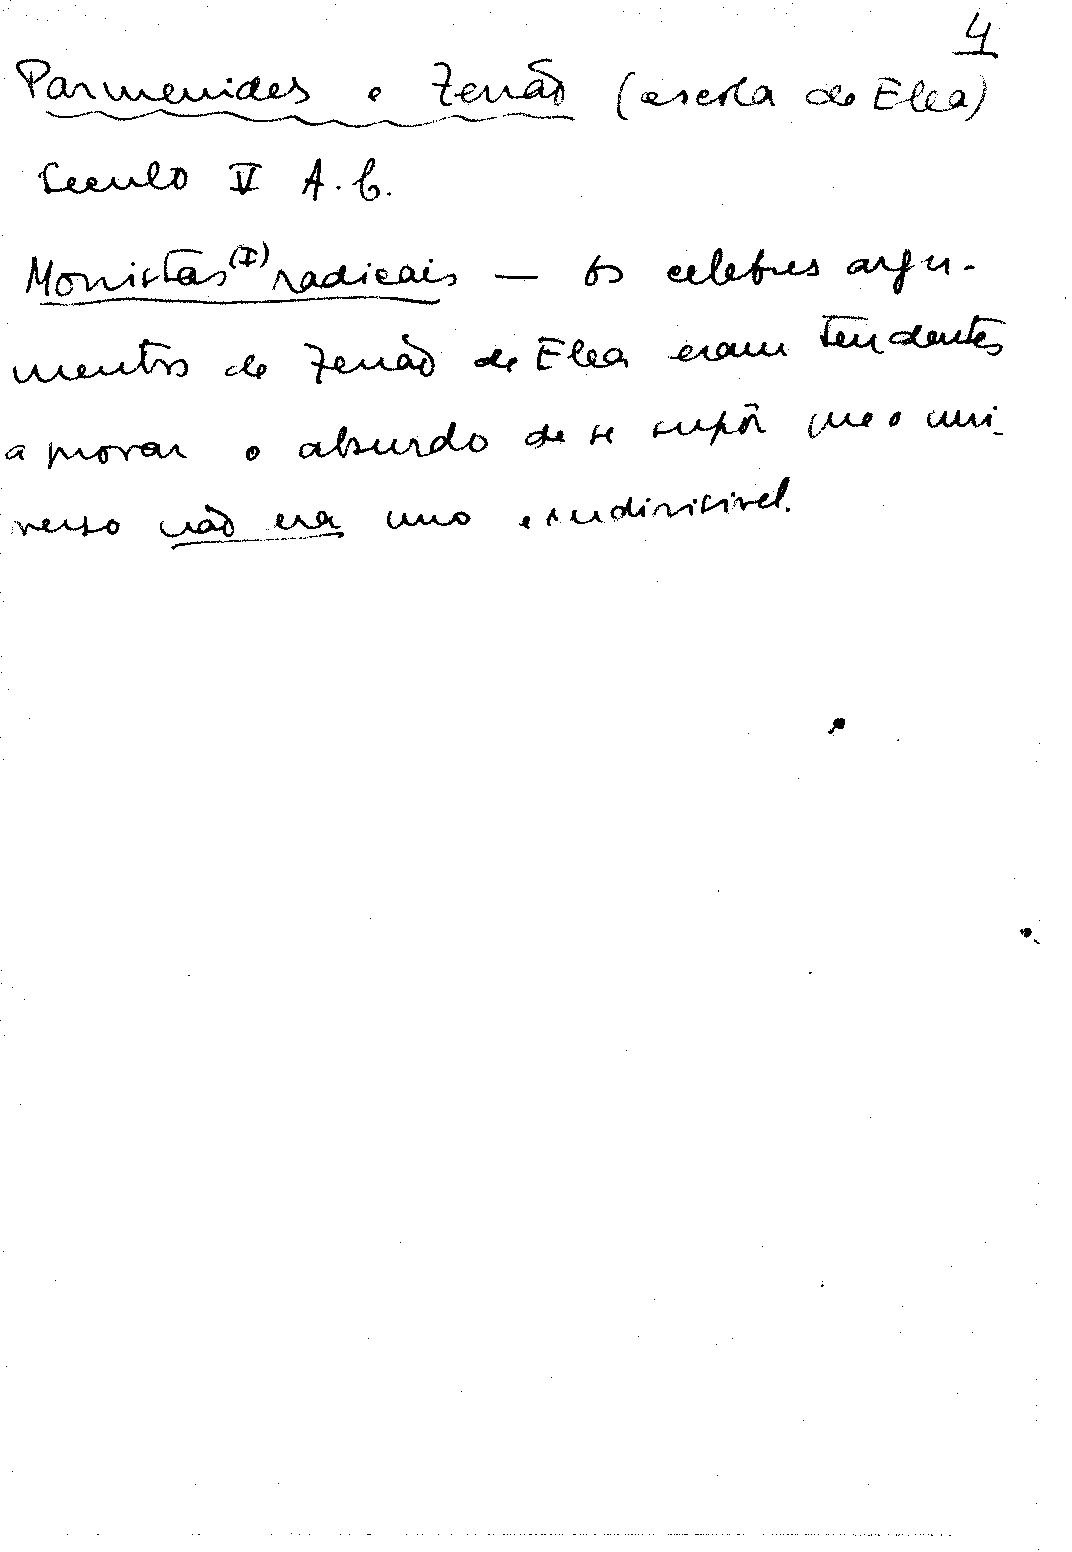 4
Parmenides e Zenão (escola de Elea)
Seculo V A.C.
Monistas (I) radicais — Os celebres argu-
mentos de Zenão de Elea eram tendentes
a provar o absurdo de se supôr que o uni-
verso não era uno e indivisivel.